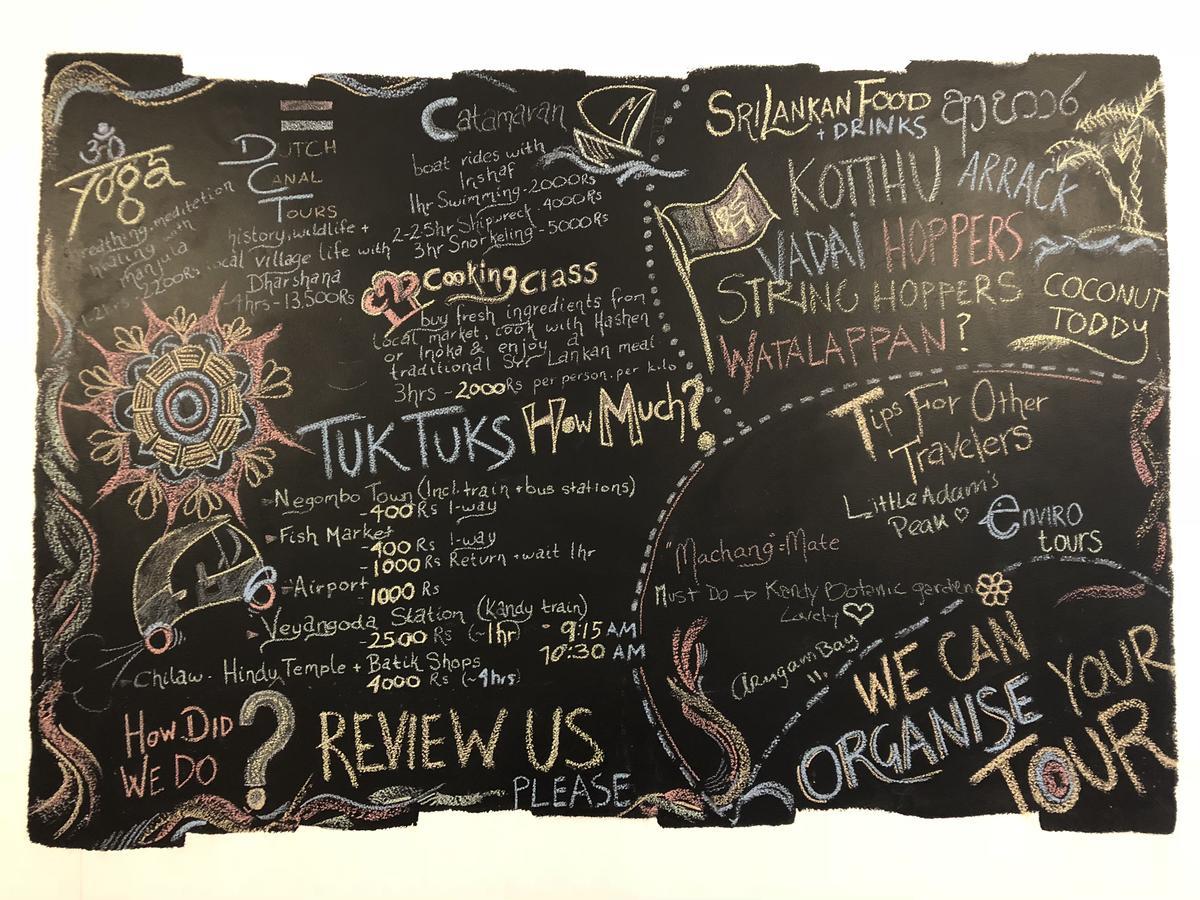 ॐ
Yoga
breathing, meditation
healing with
manjula
2200Rs
DUTCH
CANAL
TOURS
history, wildlife +
local village life with
Dharshana
4hrs - 13,500Rs
Catamaran
boat rides with
Irshaf
1hr Swimming - 2000Rs
2-2.5hr Shipwreck - 4000Rs
3hr Snorkeling - 5000Rs
Cooking Class
buy fresh ingredients from
local market, cook with Hashen
or Inoka & enjoy a
traditional Sri Lankan meal
3hrs - 2000Rs per person. per kilo
TUK TUKS How Much?
Negombo Town (Incl. train + bus stations)
- 400 Rs 1-way
Fish Market
- 400 Rs 1-way
- 1000 Rs Return + wait 1hr
Airport
1000 Rs
Veyangoda Station (Kandy train)
- 2500 Rs (~1hr) - 9:15 AM
10:30 AM
Chilaw - Hindy Temple + Batik Shops
4000 Rs (~4hrs)
HOW DID
WE DO ?
REVIEW US
PLEASE
SRI LANKAN FOOD
+ DRINKS
KOTTHU ARRACK
VADAI HOPPERS
STRING HOPPERS
WATALAPPAN?
COCONUT
TODDY
Tips For Other
Travelers
Little Adam's
Peak ♡
enviro
tours
"Machang" = Mate
Must Do → Kandy Botanic garden
Lovely ♡
Arugam Bay
!!
WE CAN
ORGANISE YOUR
TOUR